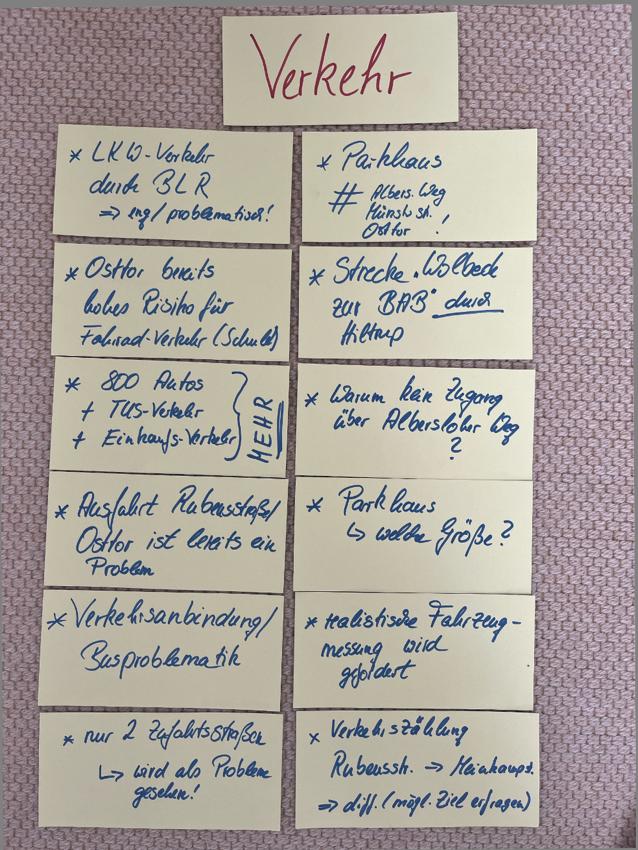 Verkehr
* LKW-Verkehr
durch BLR
⇒ eng/problematisch!
* Osttor bereits
hohes Risiko für
Fahrrad-Verkehr (Schule)
* 800 Autos
+ TUS-Verkehr
+ Einkaufs-Verkehr
MEHR
* Ausfahrt Rubensstraße/
Osttor ist bereits ein
Problem
* Verkehrsanbindung/
Busproblematik
* nur 2 Zufahrtsstraßen
↳ wird als Problem
gesehen!
* Parkhaus
# Albers. Weg
Münst. st. !
Osttor
* Strecke "Wolbeck
zur BAB" durch
Hiltrup
* Warum kein Zugang
über Albersloher Weg
?
* Parkhaus
↳ welche Größe?
* realistische Fahrzeug-
messung wird
gefordert
* Verkehrszählung
Rubensstr. →
⇒ diff. (mögl. Ziel erfragen)